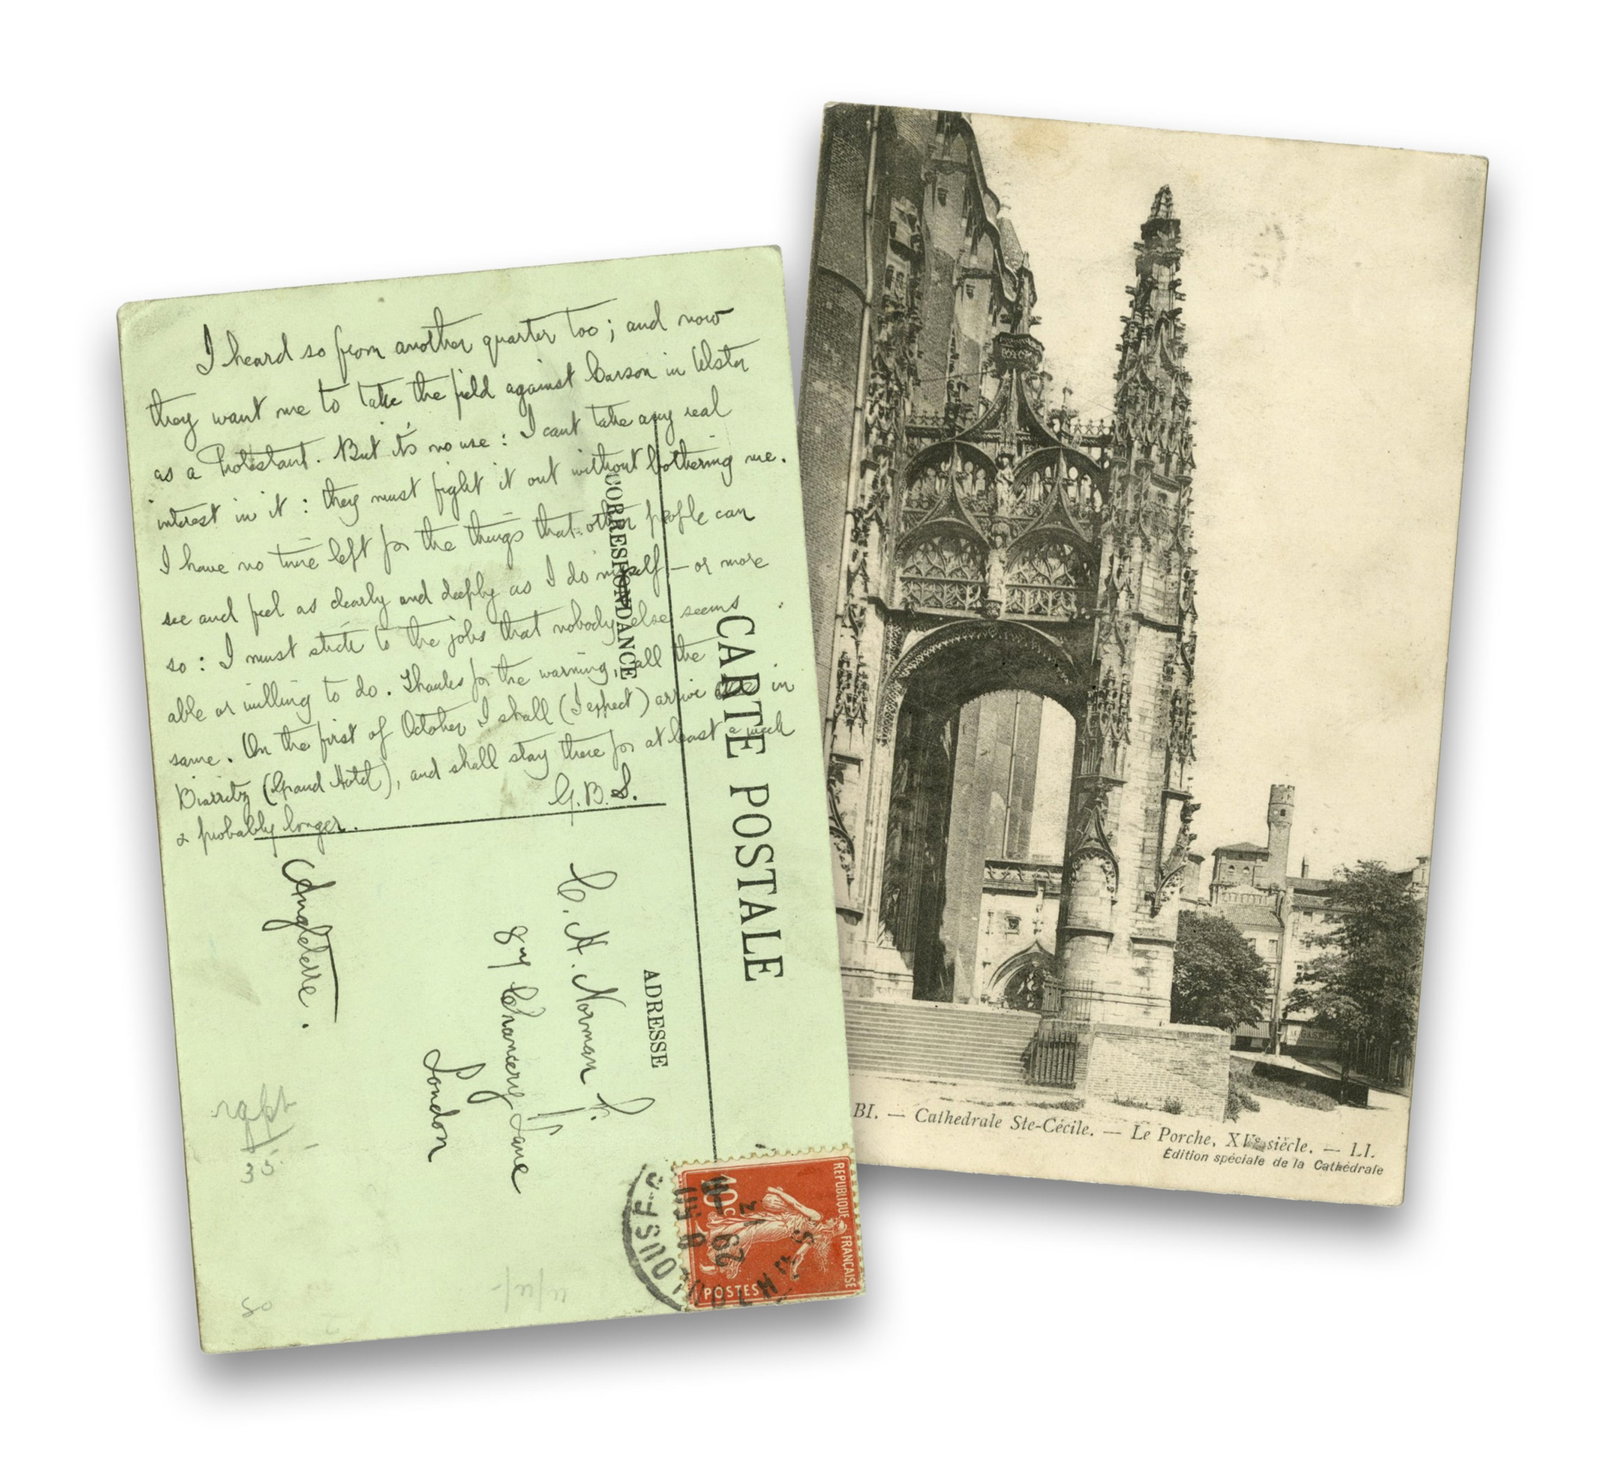 I heard so from another quarter too; and now
they want me to take the field against Carson in Ulster
as a Protestant. But it's no use: I cant take any real
interest in it: they must fight it out without bothering me.
I have no time left for the things that other people can
see and feel as clearly and deeply as I do myself — or more
so: I must stick to the jobs that nobody else seems
able or willing to do. Thanks for the warning, all the
same. On the first of October I shall (I expect) arrive in
Biarritz (Grand Hotel), and shall stay there for at least a week
& probably longer.
G.B.S.
CORRESPONDANCE
CARTE POSTALE
ADRESSE
C. H. Norman
Chancery Lane
London
Angleterre.
35
80
REPUBLIQUE FRANÇAISE
10c
POSTES
29
BI. — Cathedrale Ste-Cécile. — Le Porche, XVe siècle. — LI.
Edition spéciale de la Cathédrale